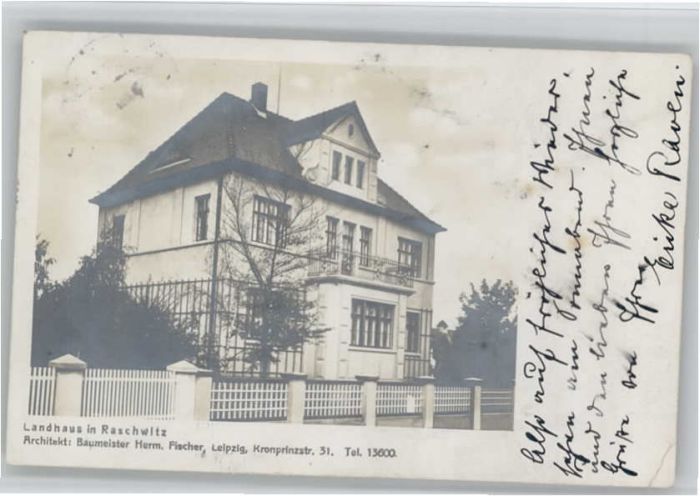 Landhaus in Raschwitz
Architekt: Baumeister Herm. Fischer, Leipzig, Kronprinzstr. 31. Tel. 13600.
Also auf fröhliches Wieder-
sehen am Sonnabend. Ihnen
und den lieben Ihren herzliche
Grüße von Ihrer
Raven.